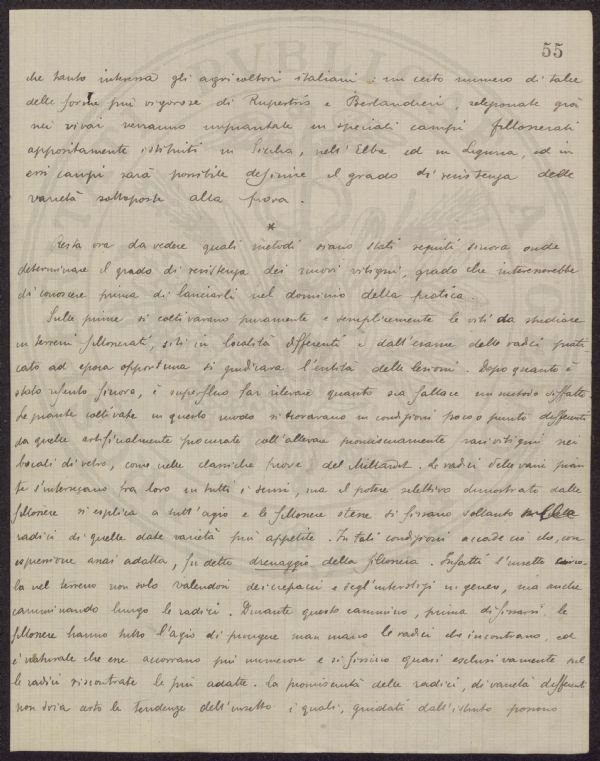 55
che tanto interessa gli agricoltori italiani: un certo numero di talee
delle forme più vigorose di Rupestris e Berlandieri, selezionate già
nei vivai verranno impiantate in speciali campi fillosserati
appositamente istituiti in Sicilia, nell'Elba ed in Liguria, ed in
essi campi sarà possibile definire il grado di resistenza delle
varietà sottoposte alla prova.
*
Resta ora da vedere quali metodi siano stati seguiti sinora onde
determinare il grado di resistenza dei nuovi vitigni, grado che interesserebbe
di conoscere prima di lanciarli nel dominio della pratica.
Sulle prime si coltivarono puramente e semplicemente le viti da studiare
in terreni fillosserati, siti in località differenti e dall'esame delle radici prati-
cato ad epoca opportuna si giudicava l'entità delle lesioni. Dopo quanto è
stato riferito sinora, è superfluo far rilevare quanto sia fallace un metodo siffatto.
Le piante coltivate in questo modo si trovavano in condizioni poco o punto differenti
da quelle artificialmente procurate coll'allevare promiscuamente vari vitigni nei
bocali di vetro, come nelle classiche prove del Millardet. Le radici delle varie pian-
te s'intersecano fra loro in tutti i sensi, ma il potere selettivo dimostrato dalle
fillossere si esplica a tutt'agio e le fillossere stesse si fissano soltanto sulle
radici di quelle date varietà più appetite. In tali condizioni accade ciò che, con
espressione assai adatta, fu detto drenaggio della fillossera. Infatti l'insetto circo-
la nel terreno non solo valendosi dei crepacci e degl'interstizi in genere, ma anche
camminando lungo le radici. Durante questo cammino, prima di fissarsi, le
fillossere hanno tutto l'agio di pungere man mano le radici che incontrano, ed
è naturale che esse accorrano più numerose e si fissino quasi esclusivamente sul-
le radici riscontrate le più adatte. La promiscuità delle radici, di varietà differenti
non svia certo le tendenze dell'insetto i quali, guidati dall'istinto possono